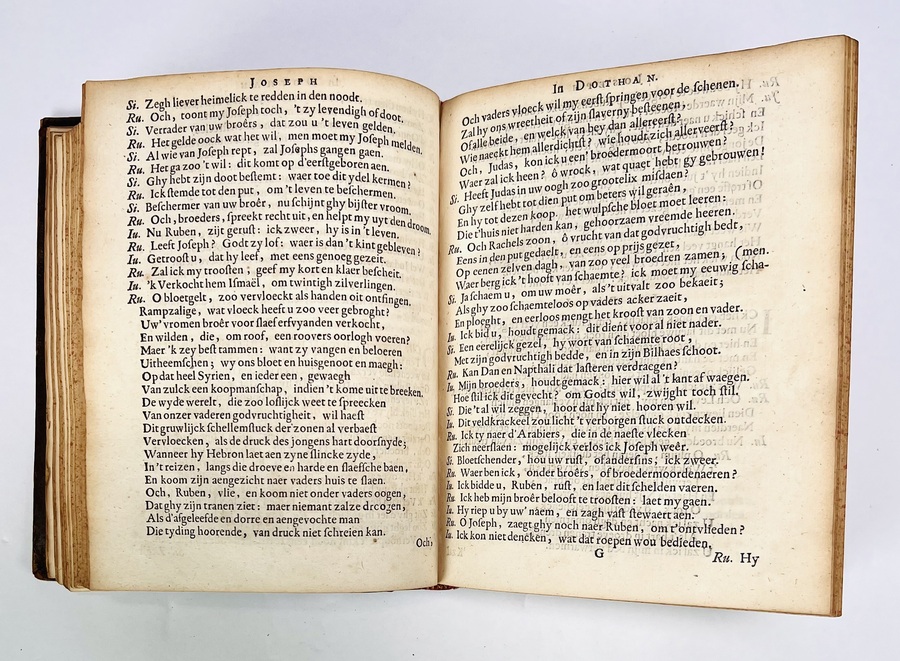 JOSEPH
Si. Zegh liever heimelick te redden in den noodt.
Ru. Och, toont my Joseph toch, 't zy levendigh of doot.
Si. Verrader van uw broêrs, dat zou u 't leven gelden.
Ru. Het gelde oock wat het wil, men moet my Joseph melden.
Si. Al wie van Joseph rept, zal Josephs gangen gaen.
Ru. Het ga zoo 't wil: dit komt op d'eerstgeboren aen.
Si. Ghy hebt zijn doot bestemt: waer toe dit ydel kermen?
Ru. Ick stemde tot den put, om 't leven te beschermen.
Si. Beschermer van uw broêr, nu schijnt ghy bijster vroom.
Ru. Och, broeders, spreekt recht uit, en helpt my uyt den droom.
Iu. Nu Ruben, zijt gerust: ick zweer, hy is in 't leven.
Ru. Leeft Joseph? Godt zy lof: waer is dan 't kint gebleven?
Iu. Getroost u, dat hy leef, met eens genoeg gezeit.
Ru. Zal ick my troosten; geef my kort en klaer bescheit.
Iu. 'k Verkocht hem Ismaël, om twintigh zilverlingen.
Ru. O bloetgelt, zoo vervloeckt als handen oit ontfingen.
Rampzalige, wat vloeck heeft u zoo veer gebroght?
Uw' vromen broêr voor slaef erfvyanden verkocht,
En wilden, die, om roof, een roovers oorlogh voeren?
Maer 'k zey best tammen: want zy vangen en beloeren
Uitheemschen; wy ons bloet en huisgenoot en maegh:
Op dat heel Syrien, en ieder een, gewaegh
Van zulck een koopmanschap, indien 't kome uit te breeken.
De wyde werelt, die zoo loslijck weet te spreecken
Van onzer vaderen godvruchtigheit, wil haest
Dit gruwlijck schellemstuck der zonen al verbaest
Vervloecken, als de druck des jongens hart doorsnyde;
Wanneer hy Hebron laet aen zyne slincke zyde,
In 't reizen, langs die droeve en harde en slaefsche baen,
En koom zijn aengezicht naer vaders huis te slaen.
Och, Ruben, vlie, en koom niet onder vaders oogen,
Dat ghy zijn tranen ziet: maer niemant zalze droogen,
Als d'afgeleefde en dorre en aengevochte man
Die tyding hoorende, van druck niet schreien kan.
Och,
IN DOTHAN.
Och vaders vloeck wil my eerst springen voor de schenen.
Zal hy ons wreetheit of zijn slaverny besteenen,
Of alle beide, en welck van bey dan allereerst?
Wie naeckt hem allerdichtst? wie houdt zich allerveerst?
Och, Judas, kon ick u een' broedermoort betrouwen?
Waer zal ick heen? ô wrock, wat quaet hebt gy gebrouwen!
Si. Heeft Judas in uw oogh zoo grootelix misdaen?
Ghy zelf hebt tot dien put om beters wil geraên,
En hy tot dezen koop. het wulpsche bloet moet leeren:
Die t'huis niet harden kan, gehoorzaem vreemde heeren.
Ru. Och Rachels zoon, ô vrucht van dat godvruchtigh bedt,
Eens in den put gedaelt, en eens op prijs gezet,
Op eenen zelven dagh, van zoo veel broedren zamen; (men.
Waer berg ick 't hooft van schaemte? ick moet my eeuwig scha-
Si. Ja schaem u, om uw moêr, als 't uitvalt zoo bekaeit;
Als ghy zoo schaemteloos op vaders acker zaeit,
En ploeght, en eerloos mengt het kroost van zoon en vader.
Iu. Ick bid u, houdt gemack: dit dient voor al niet nader.
Si. Een eerelijck gezel, hy wort van schaemte root,
Met zijn godvruchtigh bedde, en in zijn Bilhaes schoot.
Ru. Kan Dan en Napthali dat lasteren verdraegen?
Iu. Mijn broeders, houdt gemack: hier wil al 't kant af waegen.
Ru. Hoe stil ick dit gevecht? om Godts wil, zwijght toch stil.
Si. Die 't al wil zeggen, hoor dat hy niet hooren wil.
Iu. Dit veldkrackeel zou licht 't verborgen stuck ontdecken.
Ru. Ick ty naer d'Arabiers, die in de naeste vlecken
Zich neerslaen: mogelijck verlos ick Joseph weêr.
Si. Bloetschender, hou uw rust, of andersins; ick zweer.
Ru. Waer ben ick, onder broêrs, of broedermoordenaeren?
Iu. Ick bidde u, Ruben, rust, en laet dit schelden vaeren.
Ru. Ick heb mijn broêr belooft te troosten: laet my gaen.
Iu. Hy riep u by uw' naem, en zagh vast stewaert aen.
Ru. O Joseph, zaegt ghy noch naer Ruben, om t'ontvlieden?
Iu. Ick kon niet dencken, wat dat roepen wou bedieden,
G
Ru. Hy